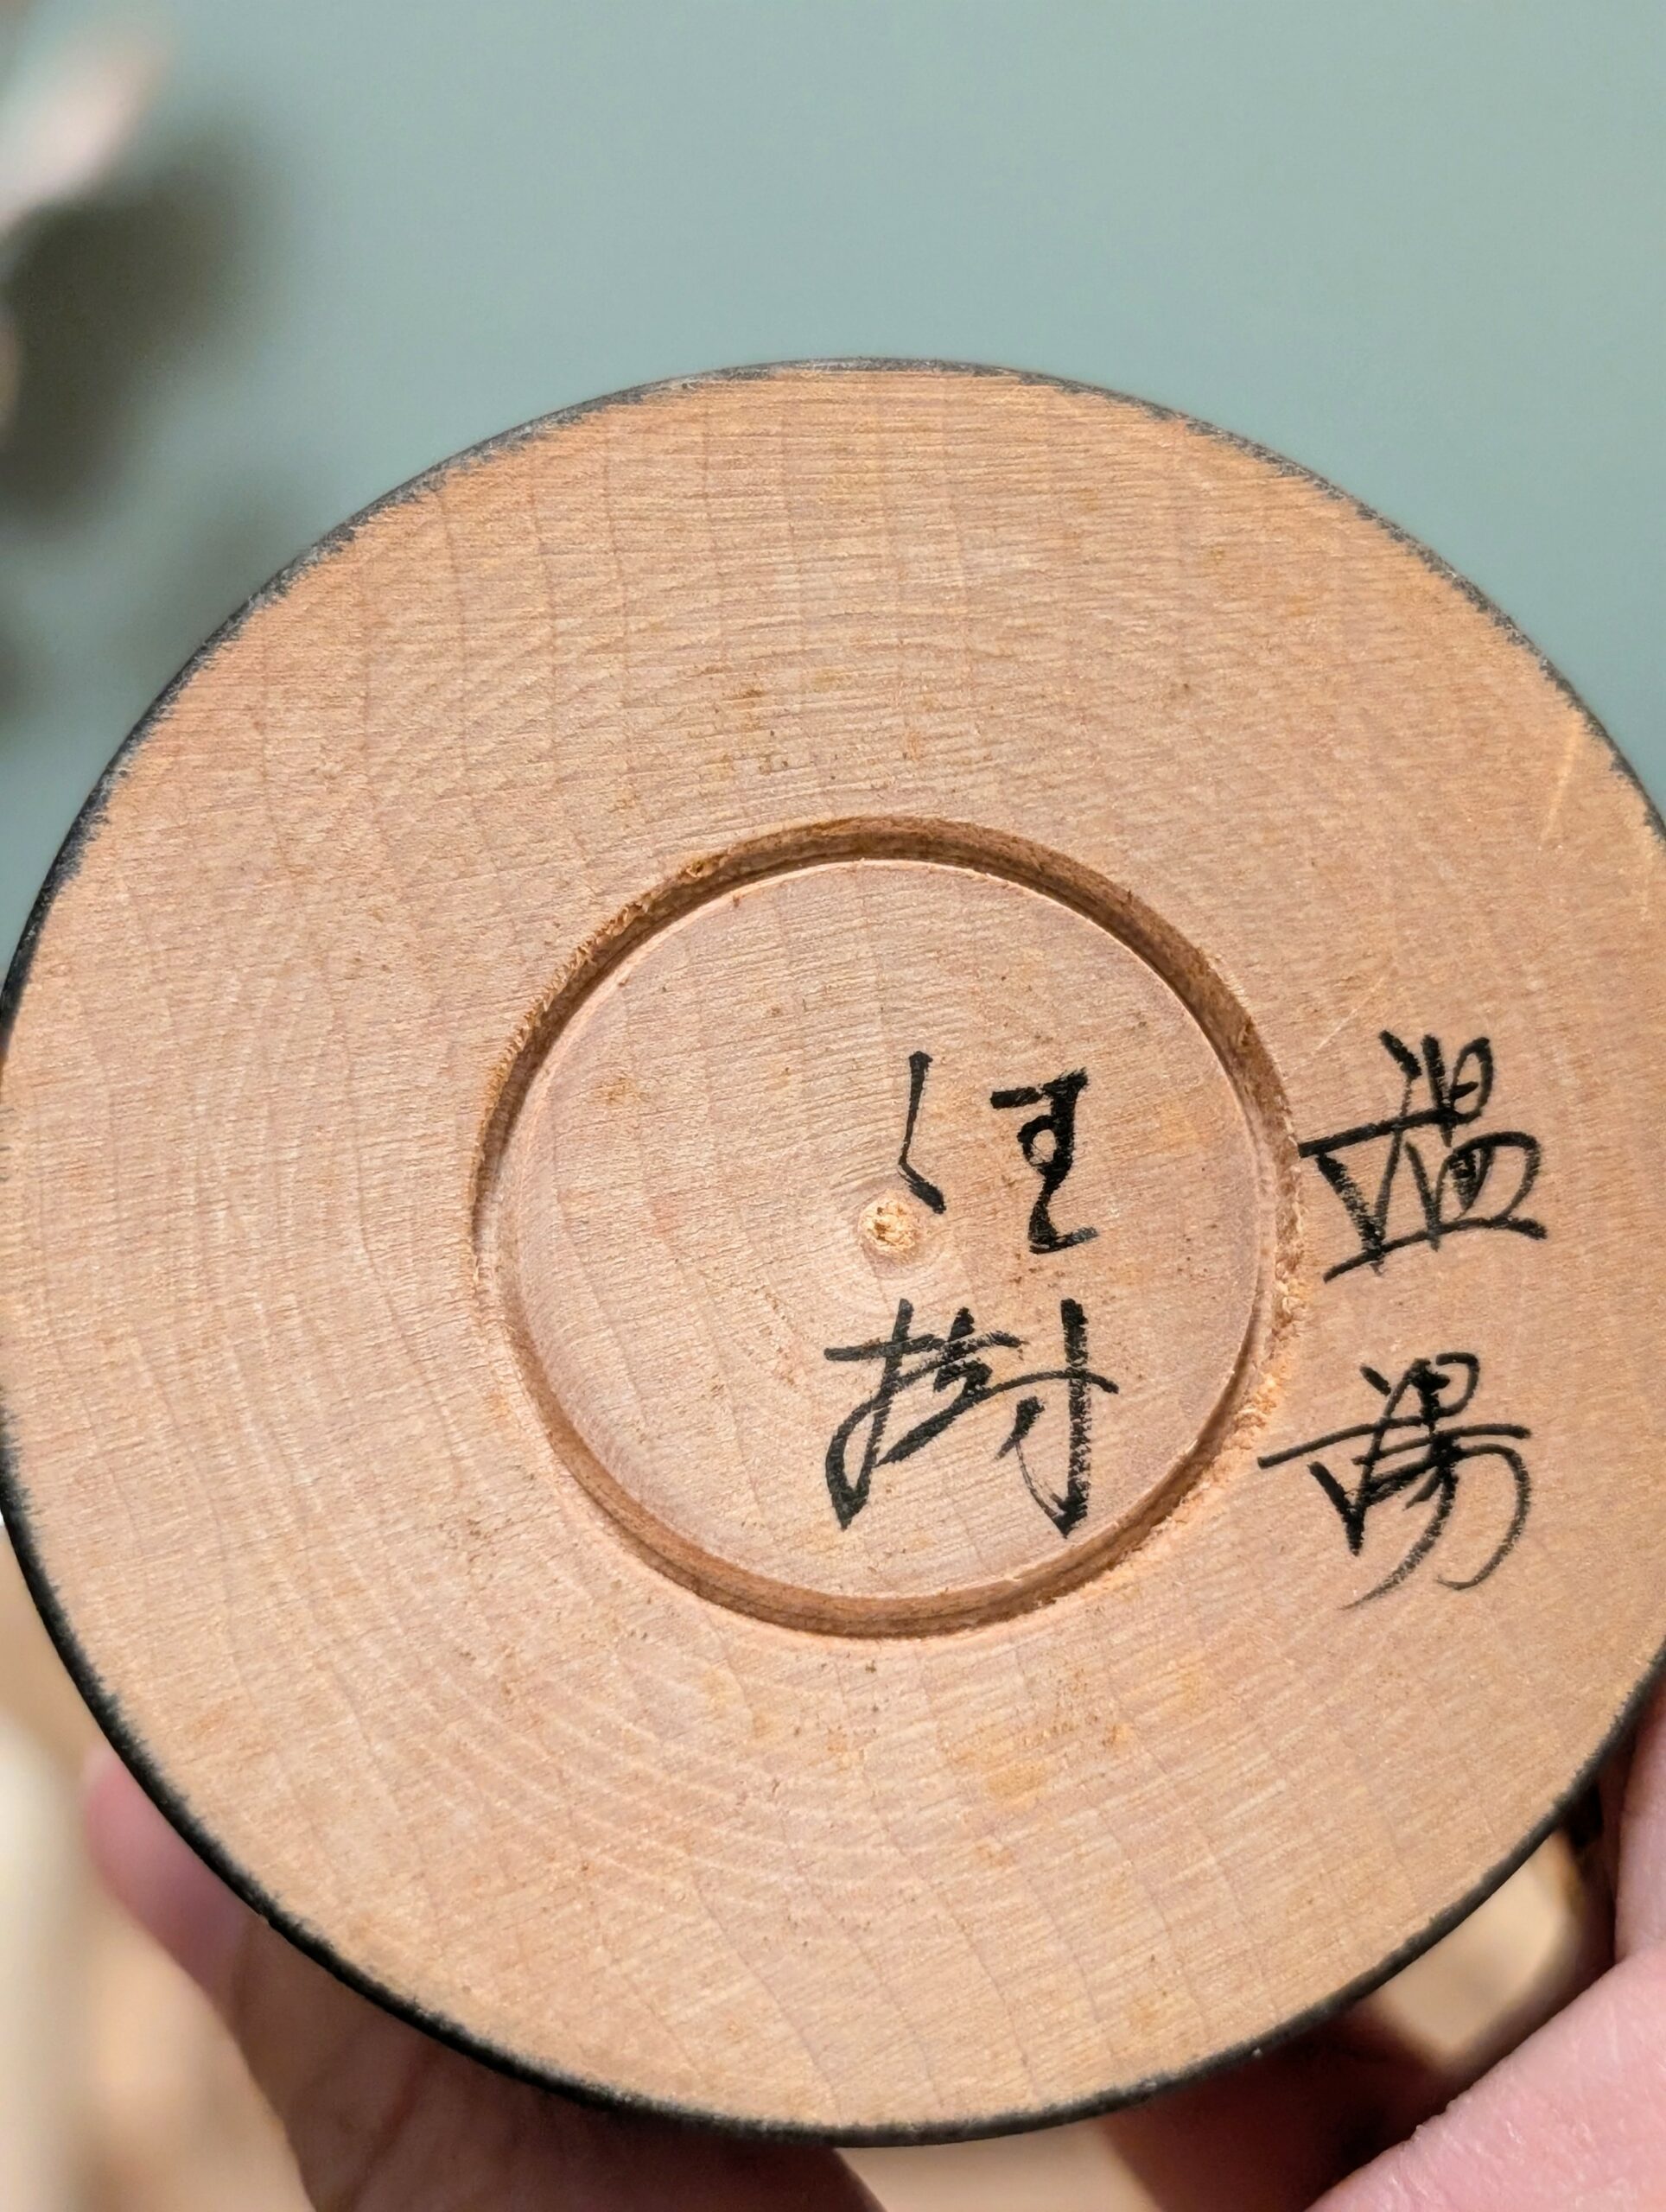 温湯
佳樹